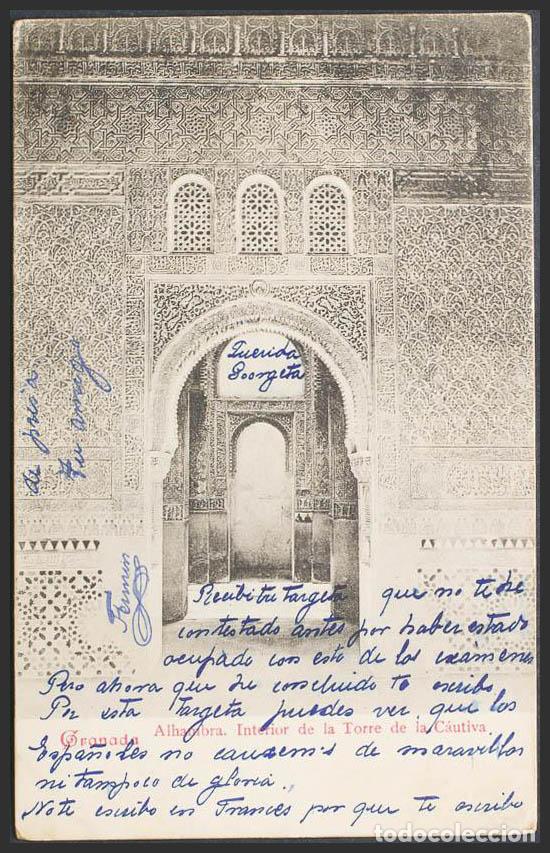 Querida
Goorgeta
Recibi tu targeta que no te he
contestado antes por haber estado
ocupado con esto de los exámenes
Pero ahora que he concluido te escribo
Por esta targeta puedes ver que los
Granada Alhambra. Interior de la Torre de la Cáutiva.
Españoles no carecemos de maravillas
ni tampoco de gloria.
No te escribo en Frances por que te escribo
de prisa.
Tu amigo
Fermin
todocoleccion